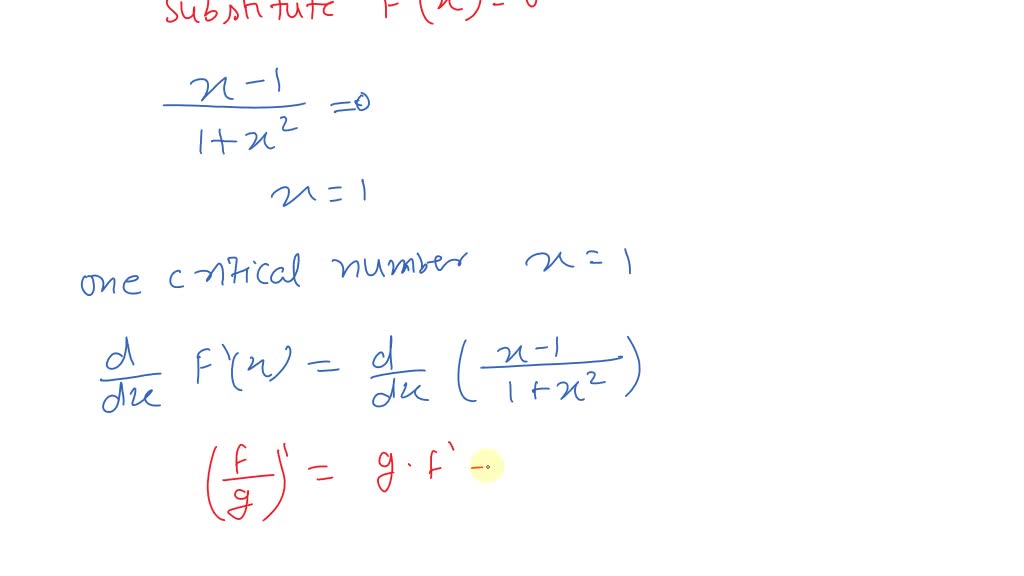 substitute F'(x) = 0
x - 1 / 1 + x² = 0
x = 1
one critical number x = 1
d/dx F'(x) = d/dx (x - 1 / 1 + x²)
(f/g)' = g · f' -